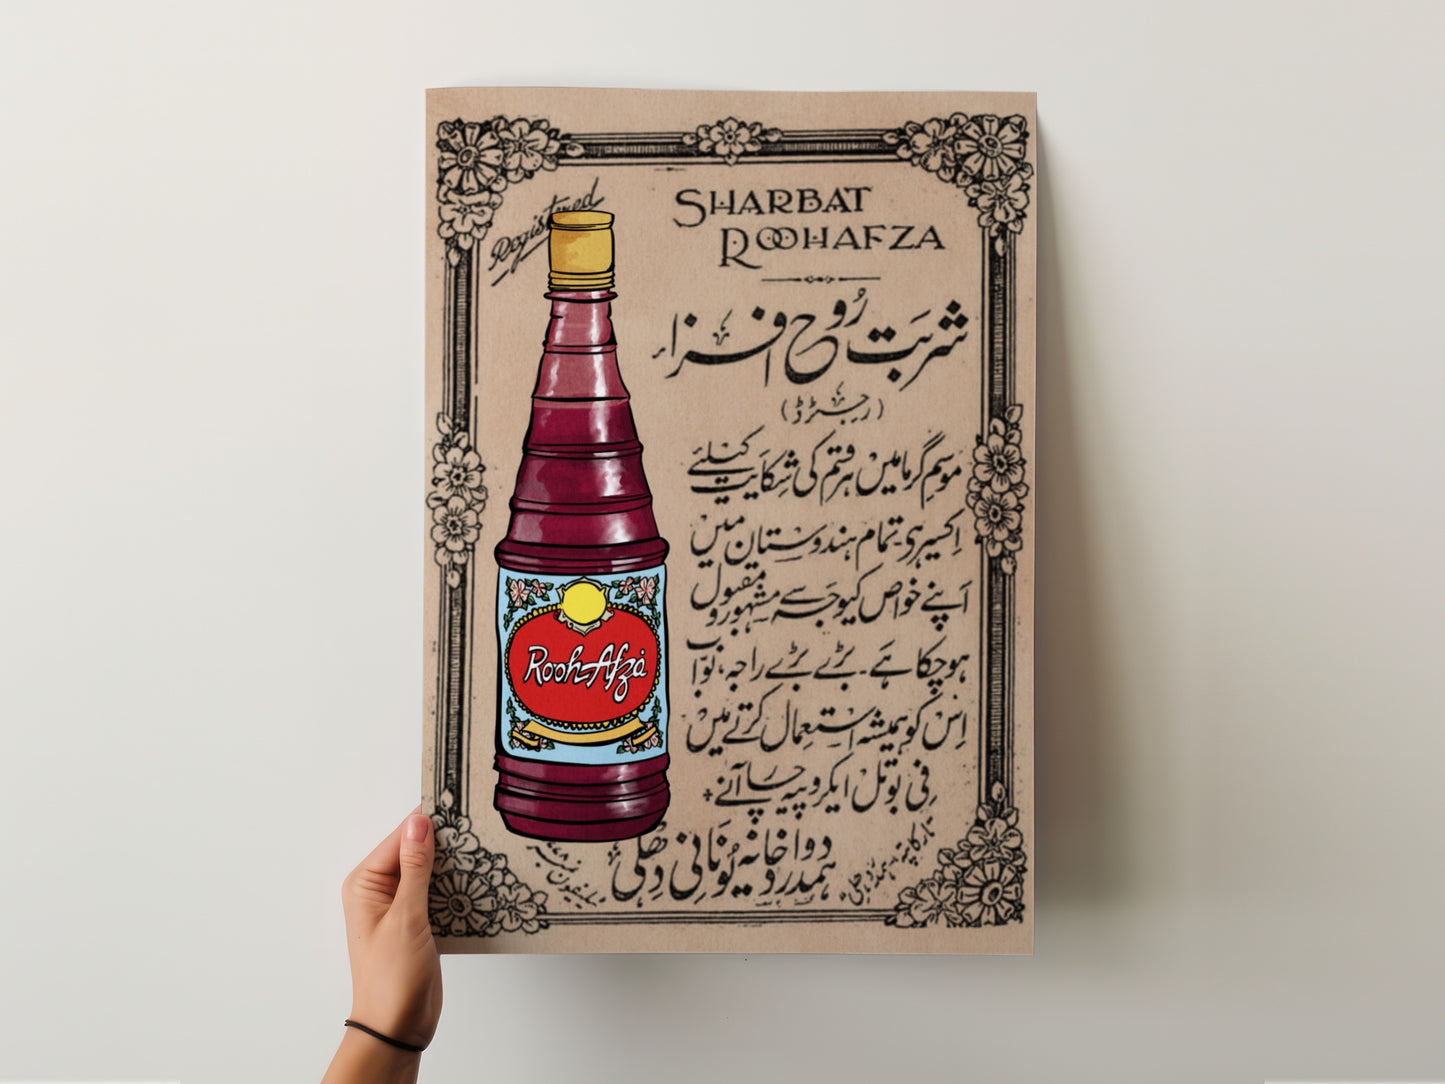 Registered
SHARBAT
ROOHAFZA
شربت رُوح افزا
(رجسٹرڈ)
موسمِ گرما میں ہر قسم کی شکایت کیلئے
اکسیر ہی۔ تمام ہندوستان میں
اپنے خواص کیوجہ سے مشہور و مقبول
ہو چکا ہے۔ بڑے بڑے راجہ، نواب
اس کو ہمیشہ استعمال کرتے ہیں
فی بوتل ایکروپیہ چار آنے
Rooh Afza
ہمدرد دواخانہ یُونانی دہلی
تار کا پتہ ہمدرد دہلی
ٹیلیفون نمبر